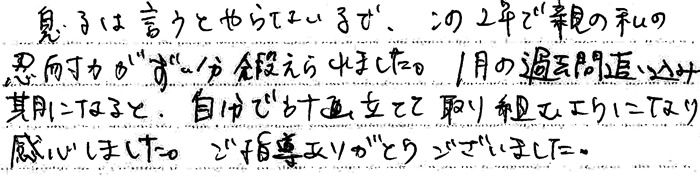 息子は言うとやらないるで、この2年で親の私の
忍耐力がずい分鍛えられました。1月の過去問追い込み
期になると、自分で計画立てて取り組むようになり
感心しました。ご指導ありがとうございました。